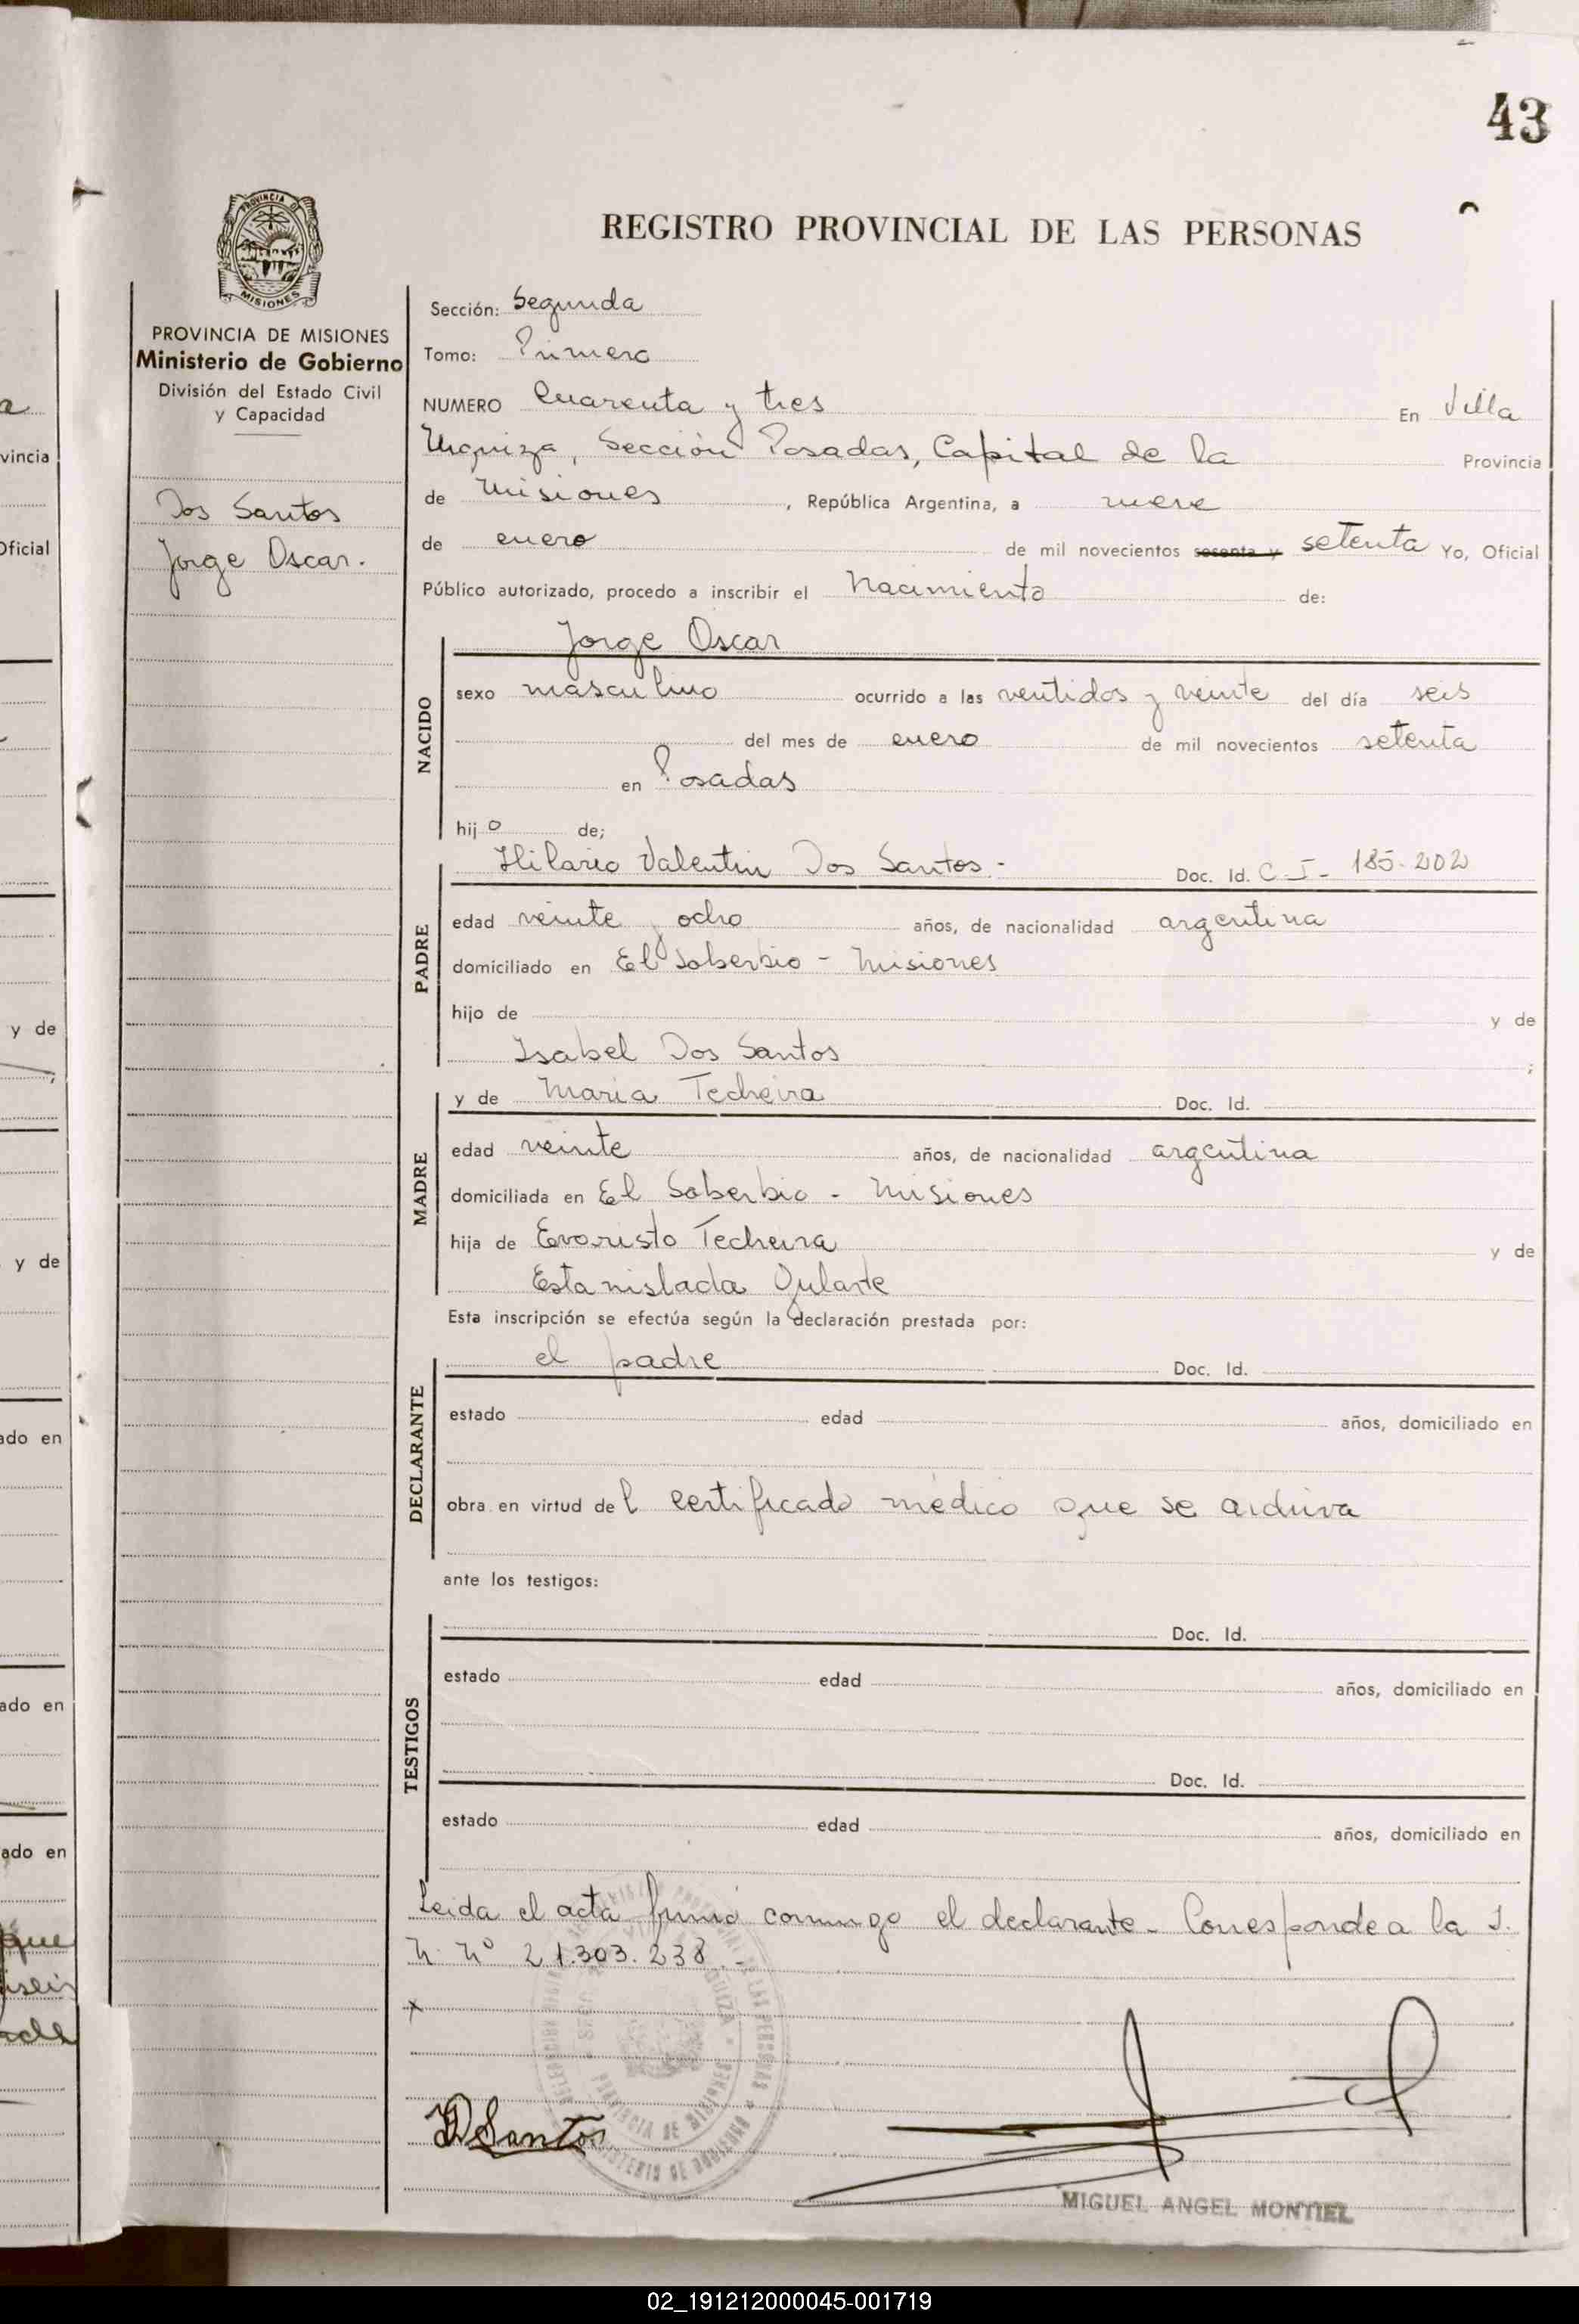 43
REGISTRO PROVINCIAL DE LAS PERSONAS
PROVINCIA DE MISIONES
Ministerio de Gobierno
División del Estado Civil
y Capacidad
Dos Santos
Jorge Oscar.
Sección: Segunda
Tomo: Primero
NUMERO Cuarenta y tres En Villa
Urquiza, Sección Posadas, Capital de la Provincia
de Misiones, República Argentina, a nueve
de enero de mil novecientos sesenta y setenta Yo, Oficial
Público autorizado, procedo a inscribir el Nacimiento de:
Jorge Oscar
NACIDO
sexo masculino ocurrido a las ventidos y veinte del día seis
del mes de enero de mil novecientos setenta
en Posadas
hijo de;
Hilario Valentin Dos Santos.- Doc. Id. C-I- 185-202
PADRE
edad veinte y ocho años, de nacionalidad argentina
domiciliado en El Soberbio - Misiones
hijo de y de
Isabel Dos Santos ;
y de Maria Techeira Doc. Id.
MADRE
edad veinte años, de nacionalidad argentina
domiciliada en El Soberbio - Misiones
hija de Evaristo Techeira y de
Estanislada Gularte
Esta inscripción se efectúa según la declaración prestada por:
el padre Doc. Id.
DECLARANTE
estado edad años, domiciliado en
obra en virtud del certificado médico que se archiva
ante los testigos:
Doc. Id.
TESTIGOS
estado edad años, domiciliado en
Doc. Id.
estado edad años, domiciliado en
Leida el acta firmó conmigo el declarante - Corresponde a la I.
N. Nº 21.303.238.-
x
HD Santos
MIGUEL ANGEL MONTIEL
02_191212000045-001719